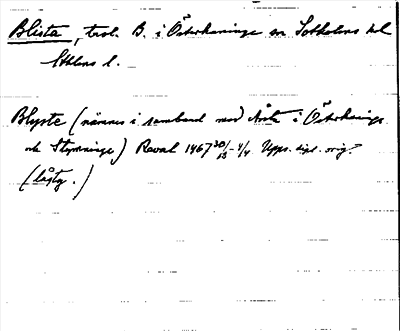 Blista, trol. B. i Österhaninge sn Sotholms hd
Sthlms l.
Blyste (nämnes i samband med Årsta i Österhaninge
och Styrninge) Reval 1467 30/13-4/4 Upps. dipl. orig?
(låstg.)